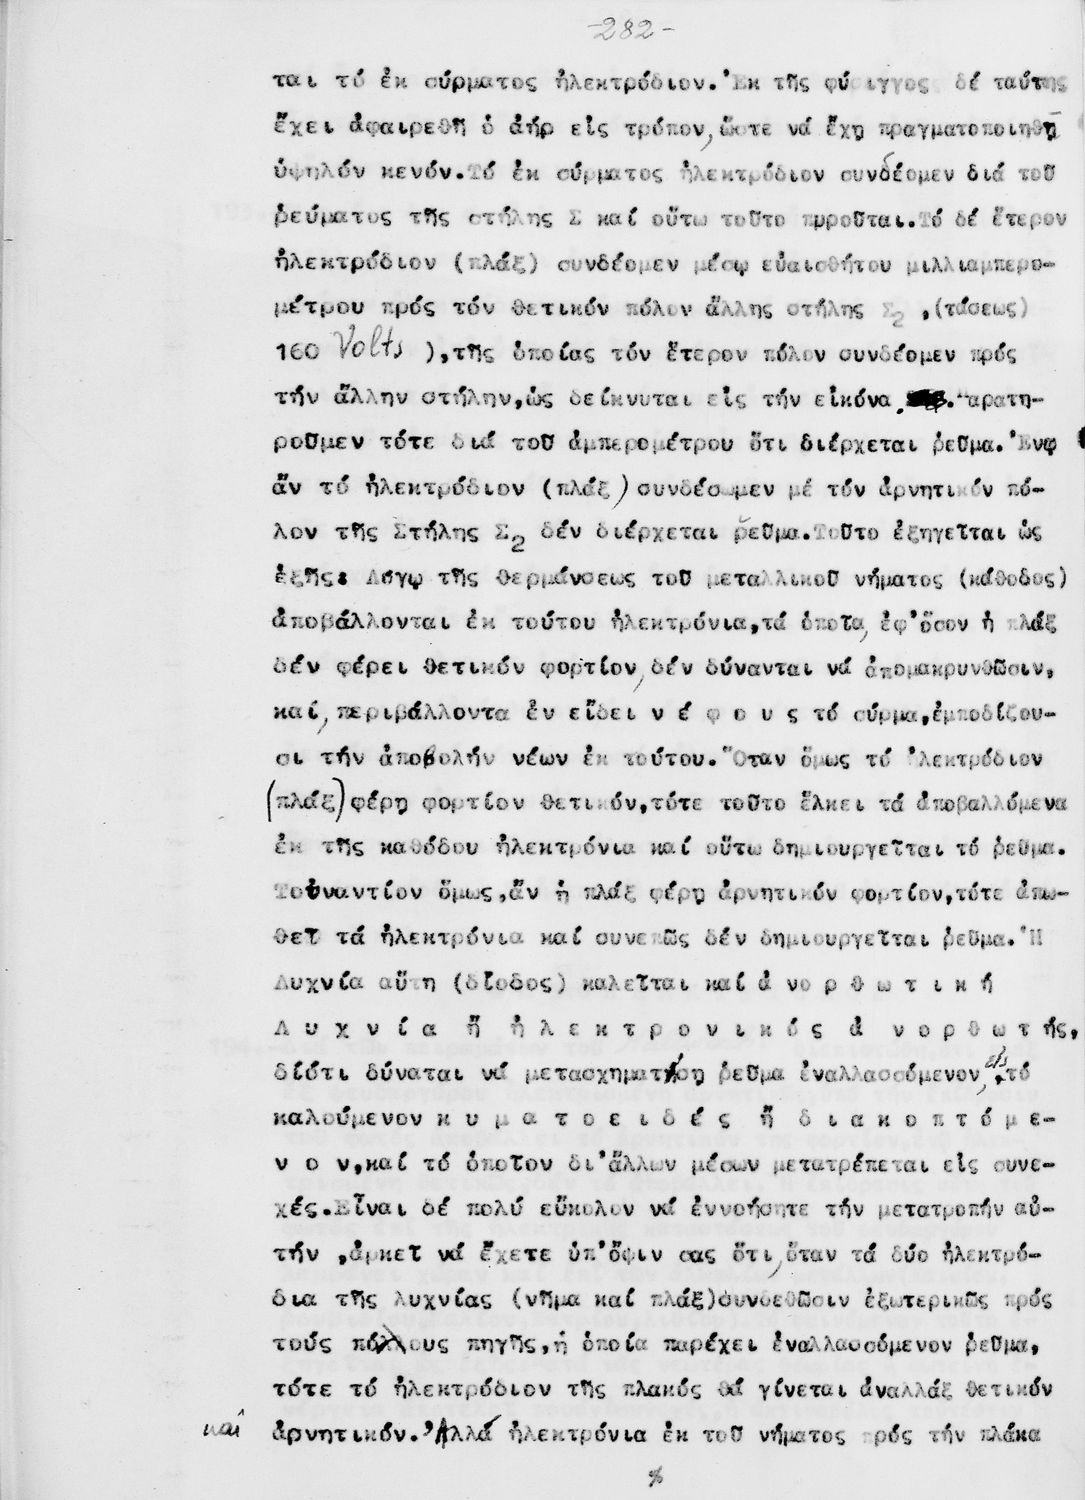 -282-
ται τό ἐκ σύρματος ἠλεκτρόδιον. Ἐκ τῆς φύσιγγος δέ ταύτης
ἔχει ἀφαιρεθῆ ὁ ἀήρ εἰς τρόπον, ὥστε νά ἔχῃ πραγματοποιηθῇ
ὑψηλόν κενόν. Τό ἐκ σύρματος ἠλεκτρόδιον συνδέομεν διά τοῦ
ῥεύματος τῆς στήλης Σ καί οὕτω τοῦτο πυροῦται. Τό δέ ἕτερον
ἠλεκτρόδιον (πλάξ) συνδέομεν μέσῳ εὐαισθήτου μιλλιαμπερο-
μέτρου πρός τόν θετικόν πόλον ἄλλης στήλης Σ2 ,(τάσεως)
160 Volts ),τῆς ὁποίας τόν ἕτερον πόλον συνδέομεν πρός
τήν ἄλλην στήλην,ὡς δείκνυται εἰς τήν εἰκόνα . Παρατη-
ροῦμεν τότε διά τοῦ ἀμπερομέτρου ὅτι διέρχεται ῥεῦμα. Ἐνῳ
ἄν τό ἠλεκτρόδιον (πλάξ) συνδέσωμεν μέ τόν ἀρνητικόν πό-
λον τῆς Στήλης Σ2 δέν διέρχεται ῥεῦμα. Τοῦτο ἐξηγεῖται ὡς
ἑξῆς: Λόγῳ τῆς θερμάνσεως τοῦ μεταλλικοῦ νήματος (κάθοδος)
ἀποβάλλονται ἐκ τούτου ἠλεκτρόνια,τά ὁποῖα, ἐφ'ὅσον ἡ πλάξ
δέν φέρει θετικόν φορτίον, δέν δύνανται νά ἀπομακρυνθῶσιν,
καί, περιβάλλοντα ἐν εἴδει ν έ φ ο υ ς τό σύρμα,ἐμποδίζου-
σι τήν ἀποβολήν νέων ἐκ τούτου. Ὅταν ὅμως τό ἠλεκτρόδιον
(πλάξ) φέρῃ φορτίον θετικόν,τότε τοῦτο ἕλκει τά ἀποβαλλόμενα
ἐκ τῆς καθόδου ἠλεκτρόνια καί οὕτω δημιουργεῖται τό ῥεῦμα.
Τοὐναντίον ὅμως,ἄν ἡ πλάξ φέρῃ ἀρνητικόν φορτίον,τότε ἀπω-
θεῖ τά ἠλεκτρόνια καί συνεπῶς δέν δημιουργεῖται ῥεῦμα. Ἡ
Λυχνία αὕτη (δίοδος) καλεῖται καί ἀ ν ο ρ θ ω τ ι κ ή
Λ υ χ ν ί α ἤ ἠ λ ε κ τ ρ ο ν ι κ ό ς ἀ ν ο ρ θ ω τ ής,
διότι δύναται νά μετασχηματίσῃ ῥεῦμα ἐναλλασσόμενον, εἰς τό
καλούμενον κ υ μ α τ ο ε ι δ έ ς ἤ δ ι α κ ο π τ ό μ ε-
ν ο ν,καί τό ὁποῖον δι'ἄλλων μέσων μετατρέπεται εἰς συνε-
χές. Εἶναι δέ πολύ εὔκολον νά ἐννοήσητε τήν μετατροπήν αὐ-
τήν ,ἀρκεῖ νά ἔχετε ὑπ'ὄψιν σας ὅτι, ὅταν τά δύο ἠλεκτρό-
δια τῆς λυχνίας (νῆμα καί πλάξ)συνδεθῶσιν ἐξωτερικῶς πρός
τούς πόλους πηγῆς,ἡ ὁποία παρέχει ἐναλλασσόμενον ῥεῦμα,
τότε τό ἠλεκτρόδιον τῆς πλακός θά γίνεται ἀναλλάξ θετικόν
καί ἀρνητικόν. Ἀλλά ἠλεκτρόνια ἐκ τοῦ νήματος πρός τήν πλάκα